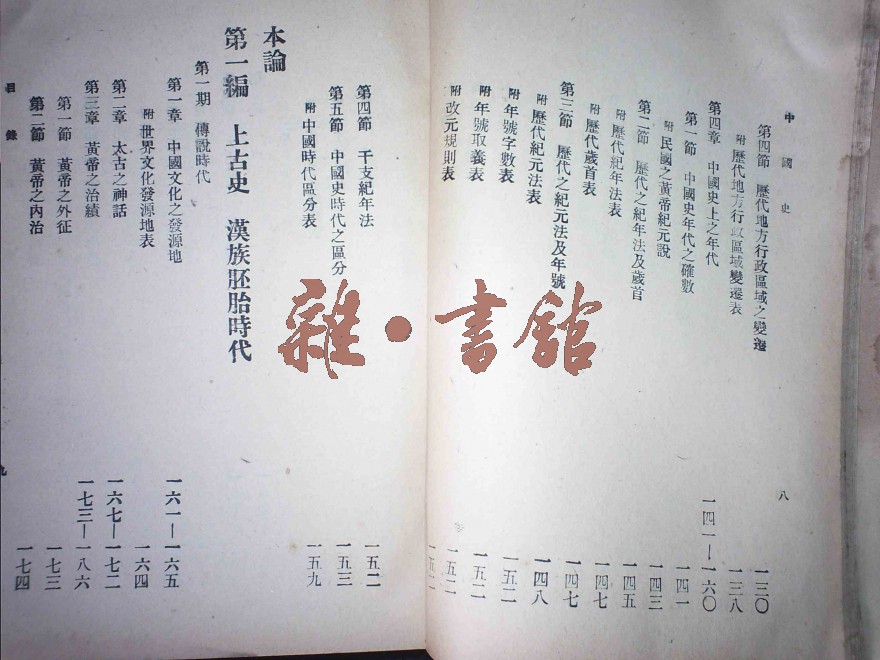 中國史
八
第四節 歷代地方行政區域之變遷 一三〇
附 歷代地方行政區域變遷表 一三八
第四章 中國史上之年代 一四一—一六〇
第一節 中國史年代之確數 一四一
附 民國之黃帝紀元說 一四三
第二節 歷代之紀年法及歲首 一四五
附 歷代紀年法表 一四七
附 歷代歲首表 一四七
第三節 歷代之紀元法及年號 一四八
附 歷代紀元法表
附 年號字數表 一五二
附 年號取義表 一五二
附 改元規則表
第四節 干支紀年法 一五二
第五節 中國史時代之區分 一五三
附 中國時代區分表 一五九
本論
第一編 上古史 漢族胚胎時代
第一期 傳說時代
第一章 中國文化之發源地 一六一—一六五
附 世界文化發源地表 一六四
第二章 太古之神話 一六七—一七二
第三章 黃帝之治績 一七三—一八六
第一節 黃帝之外征 一七三
第二節 黃帝之內治 一七四
目錄
九
雜·書館